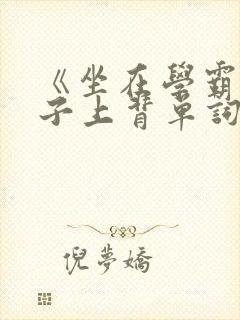 《坐在學霸
子上背單詞
倪夢嬌